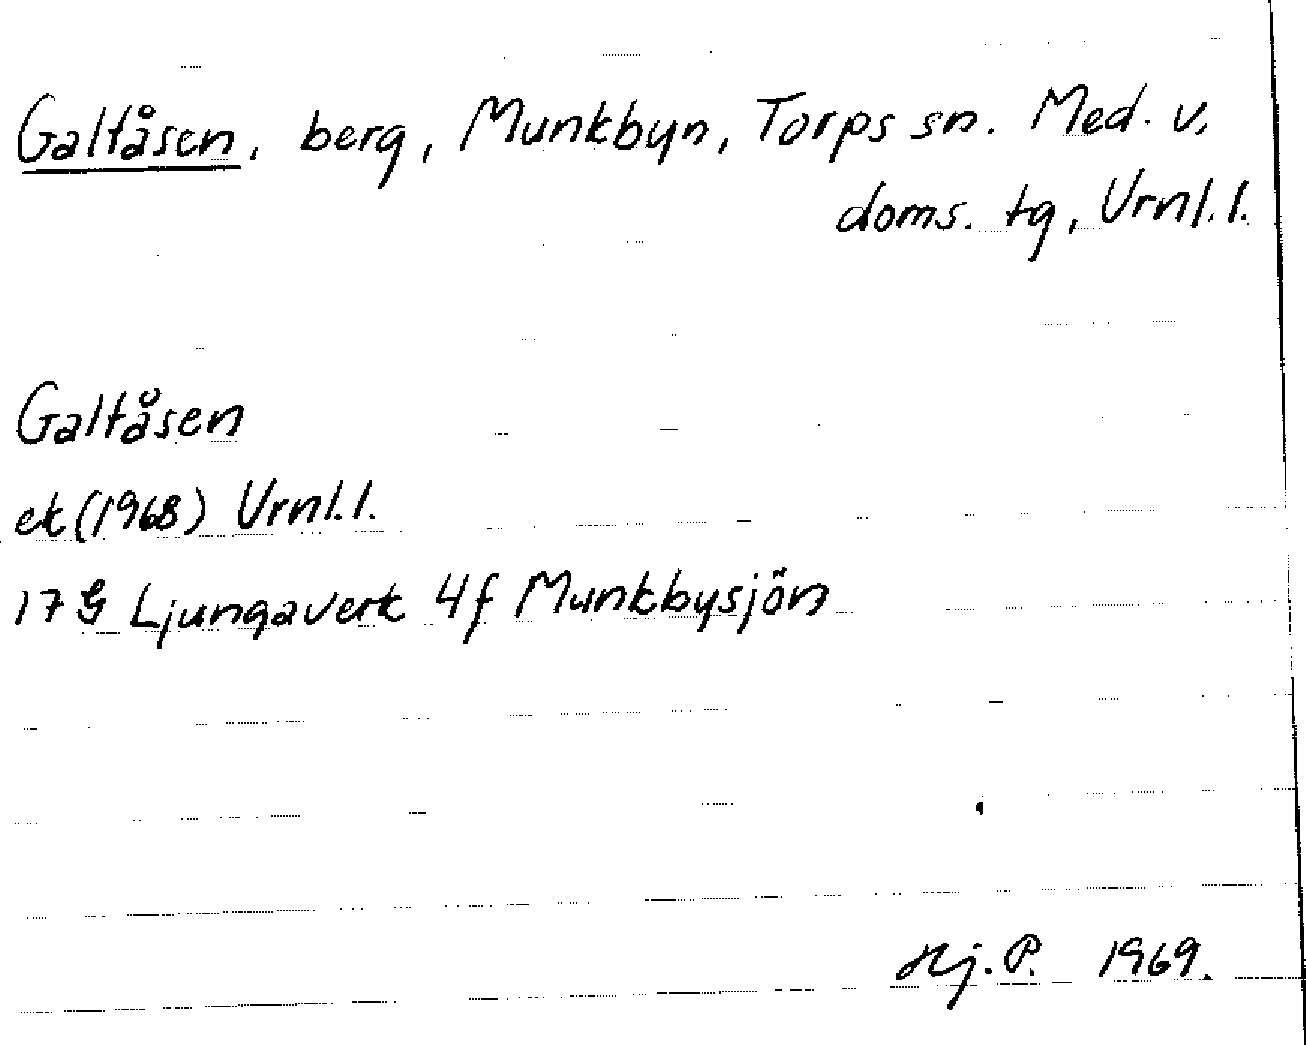 Galtåsen, berg, Munkbyn, Torps sn. Med. v,
doms. tg, Vrnl. l.
Galtåsen
ek (1968) Vrnl. l.
17 G Ljungaverk 4f Munkbysjön
Hj. P. 1969.